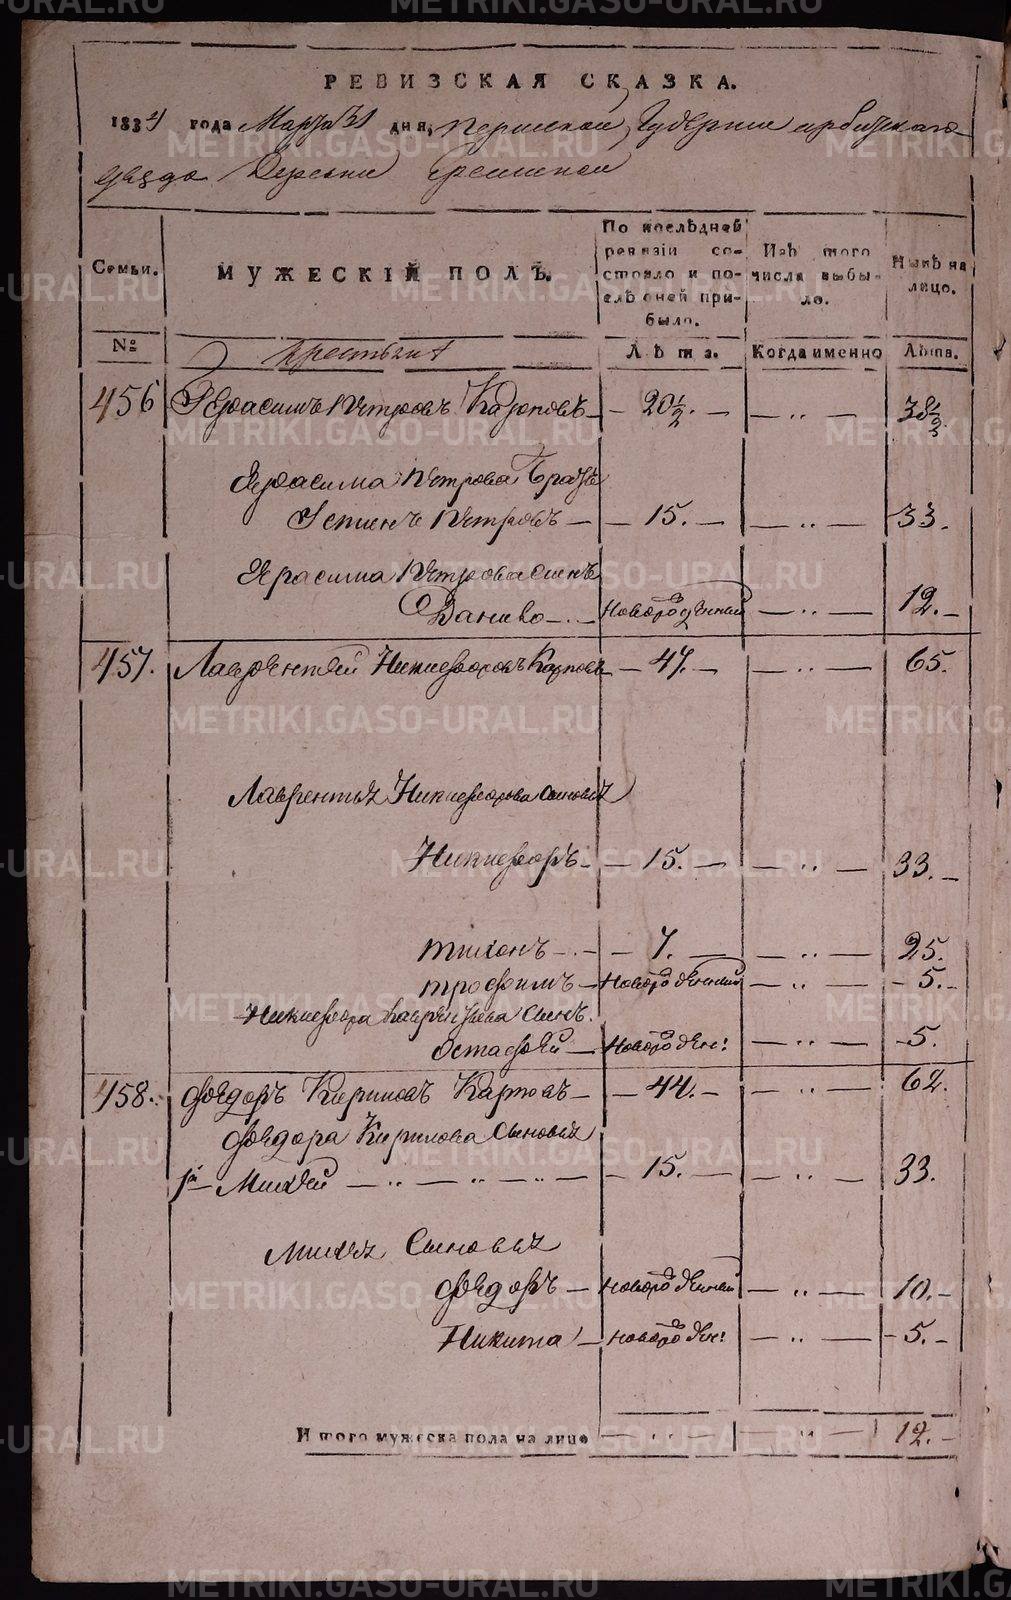 РЕВИЗСКАЯ СКАЗКА.
1834 года Марта 31 дня, Пермской Губернии ирбитскаго
уезда Деревни
Семьи. МУЖЕСКІЙ ПОЛЪ. По послѣдней ревизіи состояло и послѣ оней прибыло. Изъ того числа выбыло. Нынѣ на лицо.
№ Крестьяне Лѣта. Когда именно Лѣта.
456 Герасимъ Петровъ Карповъ — 20 1/2. — — „ — 38 1/2.
Герасима Петрова Братъ
Устинъ Петровъ — — 15. — — „ — 33.
Герасима Петрова сынъ
Данило — Новорожденный — „ — 12. —
457. Лаврентей Никифоровъ Карповъ — 47. — — „ — 65.
Лаврентья Никифорова сыновья
Никифоръ — — 15. — — „ — 33. —
тихонъ — — 7. — — „ — 25.
трофимъ — Новорожденный — „ — — 5. —
Никифора Лаврентьева сынъ.
Остафей — Новорожден: — „ — — 5.
458. Федоръ Кириловъ Карповъ — — 44. — — „ — 62.
Федора Кирилова сыновья
1й — Михей — „ — „ — „ — — 15. — — „ — 33.
Михея Сыновья
Федоръ — новорожденный — „ — 10. —
Никита — новорожден: — „ — — 5. —
И того мужеска пола на лицо — „ — — „ — 12. —
METRIKI.GASO-URAL.RU